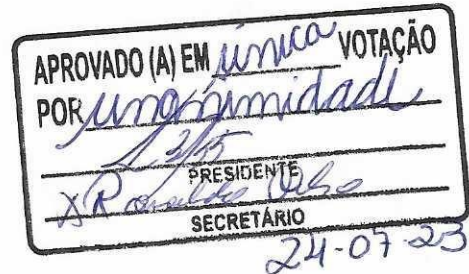 APROVADO (A) EM única VOTAÇÃO
POR unanimidade
PRESIDENTE
X Ronaldo
SECRETÁRIO
24-07-23